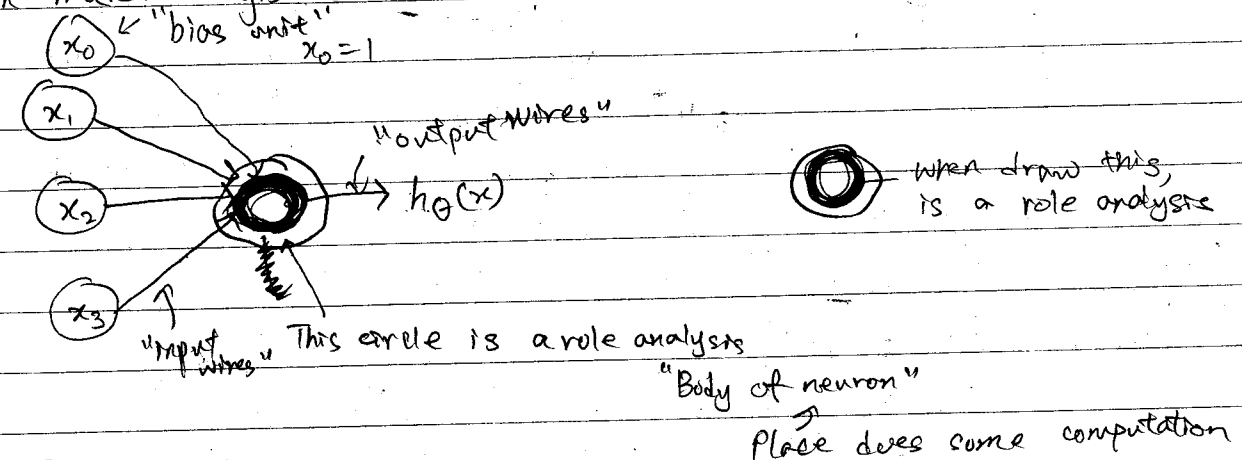 x₀ "bias unit"
x₀ = 1
x₁
"output wires"
x₂ hθ(x)
when draw this,
is a role analysis
x₃
"input wires" This circle is a role analysis
"Body of neuron"
Place does some computation